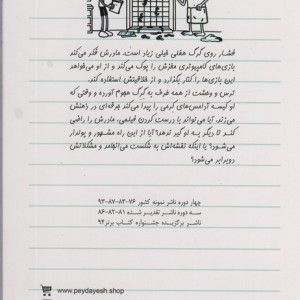 فشار روی گرگ هفلی خیلی زیاد است. مادرش فکر می‌کند
بازی‌های کامپیوتری مغزش را پوک می‌کند و از او می‌خواهد
این بازی‌ها را کنار بگذارد و از خلاقیتش استفاده کند.
ترس و وحشت از همه طرف به گرگ هجوم آورده و وقتی که
او کیسه آدامس‌های کرمی را پیدا می‌کند جرقه‌ای در ذهنش
می‌زند. آیا می‌تواند با درست کردن فیلمی، مادرش را راضی
کند تا دیگر به او گیر ندهد؟ آیا از این راه مشهور و پولدار
می‌شود؟ یا اینکه نقشه‌اش به شکست می‌انجامد و مشکلاتش
دوبرابر می‌شود؟
چهار دوره ناشر نمونه کشور ۷۶-۸۴-۸۷-۹۲
سه دوره ناشر تقدیر شده ۸۱-۸۲-۸۶
ناشر برگزیده جشنواره کتاب برتر ۹۴
www.peydayesh.shop